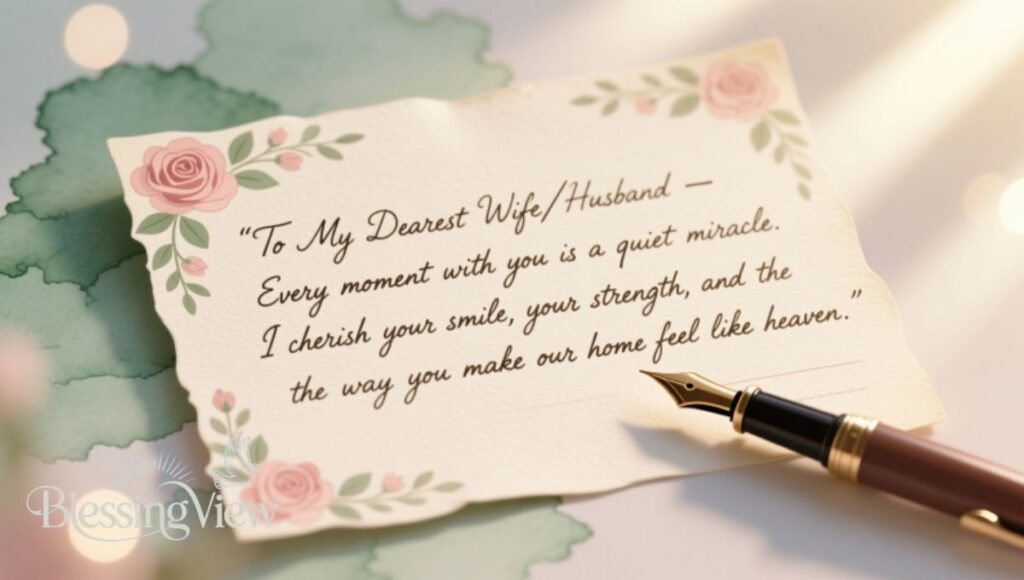 “To My Dearest Wife/Husband —
Every moment with you is a quiet miracle.
I cherish your smile, your strength, and the
the way you make our home feel like heaven.”
BlessingView